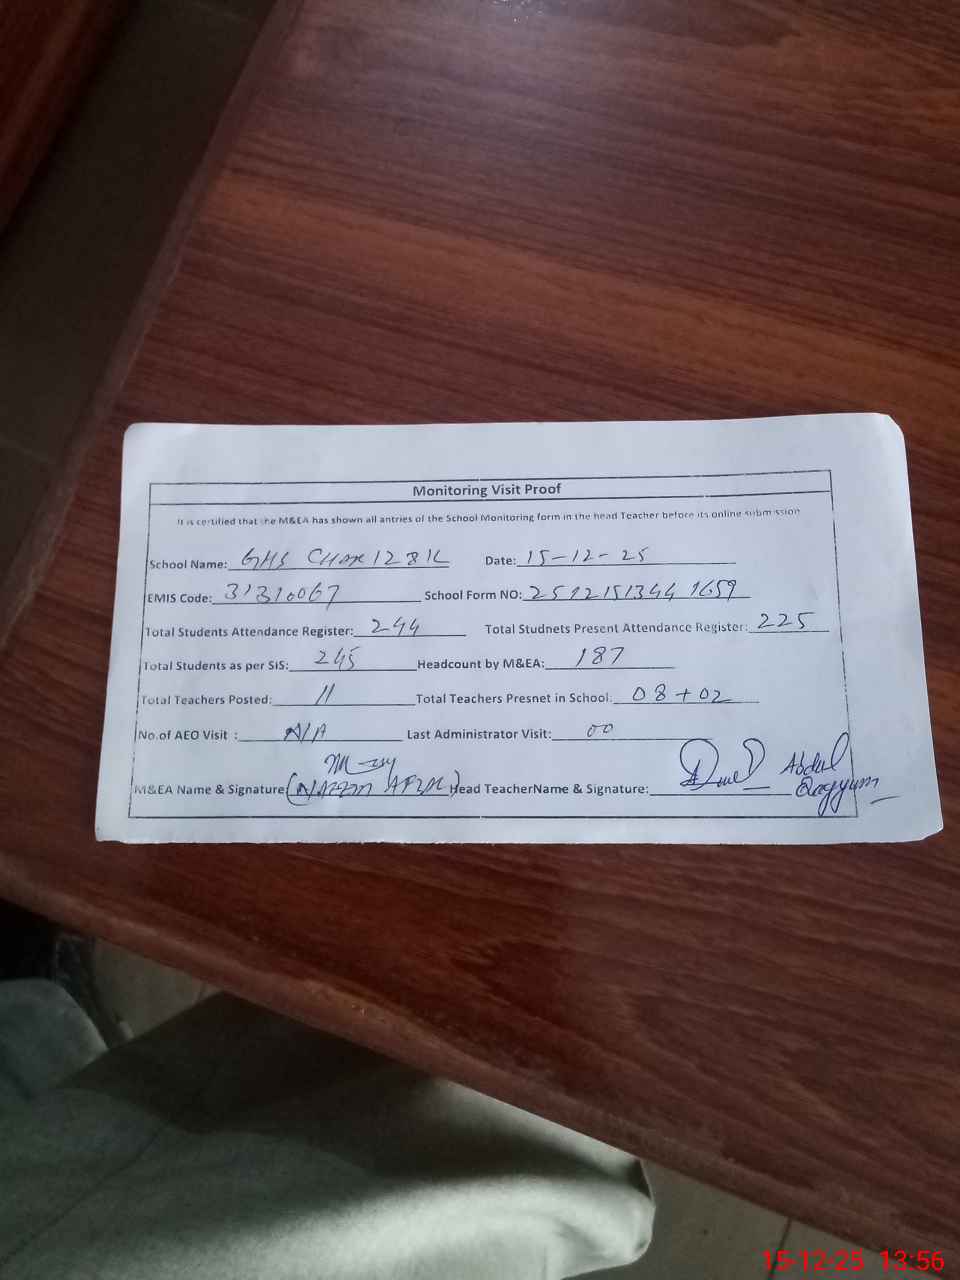 Monitoring Visit Proof
It is certified that the M&EA has shown all antries of the School Monitoring form in the head Teacher before its online submission
School Name: GHS Chak 128 1L Date: 15-12-25
EMIS Code: 31310067 School Form NO: 2512151344 1659
Total Students Attendance Register: 244 Total Studnets Present Attendance Register: 225
Total Students as per SIS: 245 Headcount by M&EA: 187
Total Teachers Posted: 11 Total Teachers Presnet in School: 08 + 02
No.of AEO Visit : N/A Last Administrator Visit: 00
M&EA Name & Signature Head TeacherName & Signature: Abdul Qayyum
15-12-25 13:56